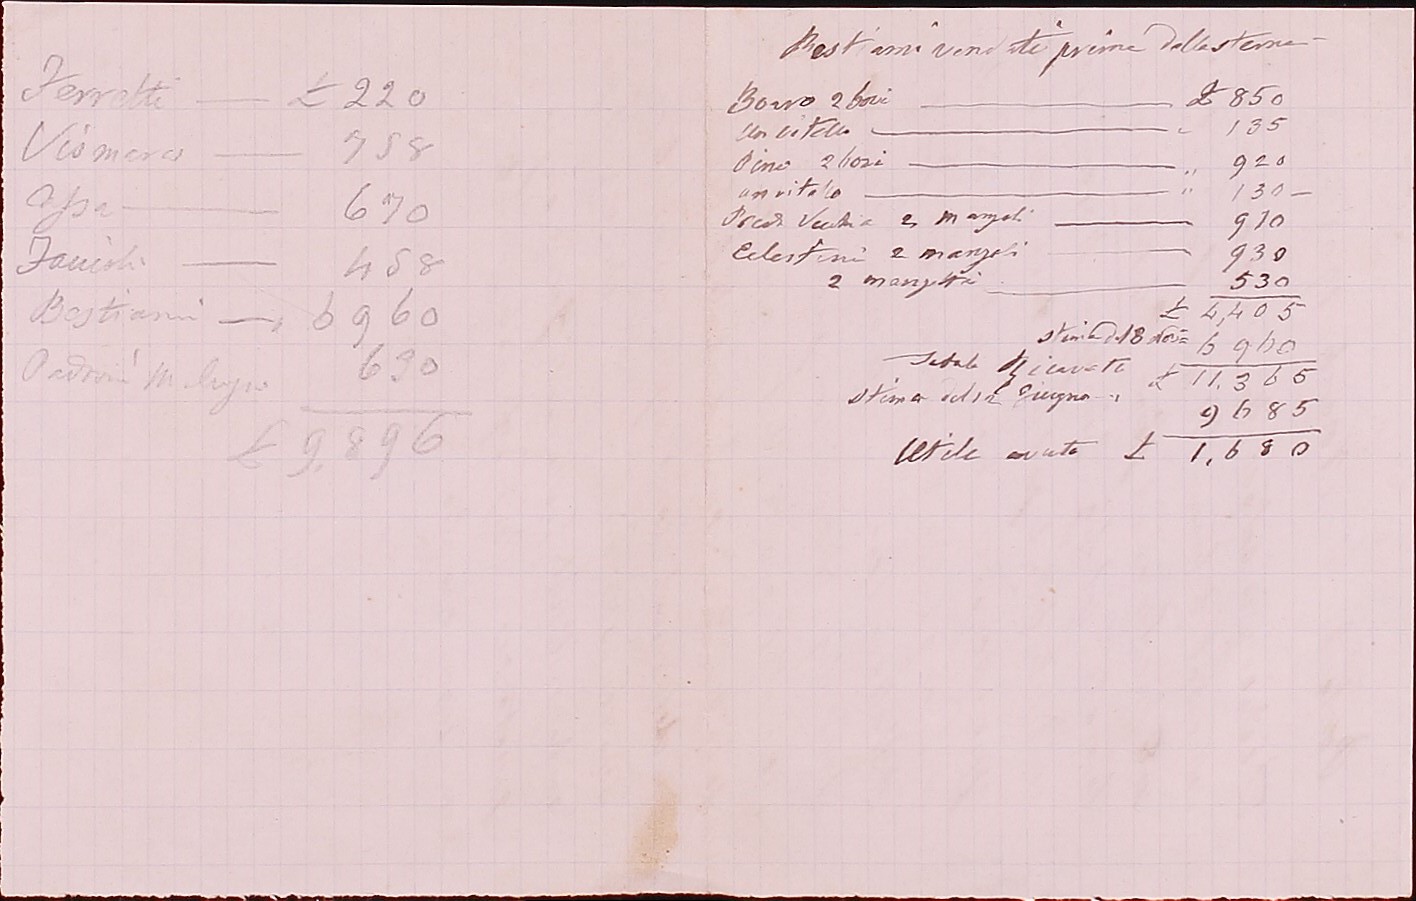 Ferretti — £ 220
Vismara — 758
670
458
Bestiami — „ 6960
Padroni 630
£ 9,896
Bestiami venduti prima della stema
Bovro 2 bovi — £ 850
un vitello — „ 135
Pino 2 bovi — „ 920
un vitelo — „ 130 –
Vechia 2 manzoli — 910
Celestini 2 manzoli — 930
2 manzetti — 530
£ 4,405
stima del 8 6960
Totale Ricavato £ 11,365
stima del 12 Giugno „ 9685
Utile avuto £ 1,680